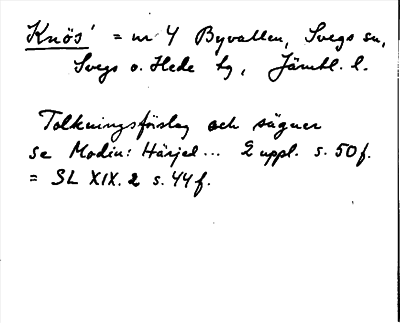 Knös' = nr 4 Byvallen, Svegs sn,
Svegs o. Hede tg, Jämtl. l.
Tolkningsförslag och sägner
se Modin: Härjed... 2 uppl. s. 50 f.
= SL XIX. 2 s. 44 f.